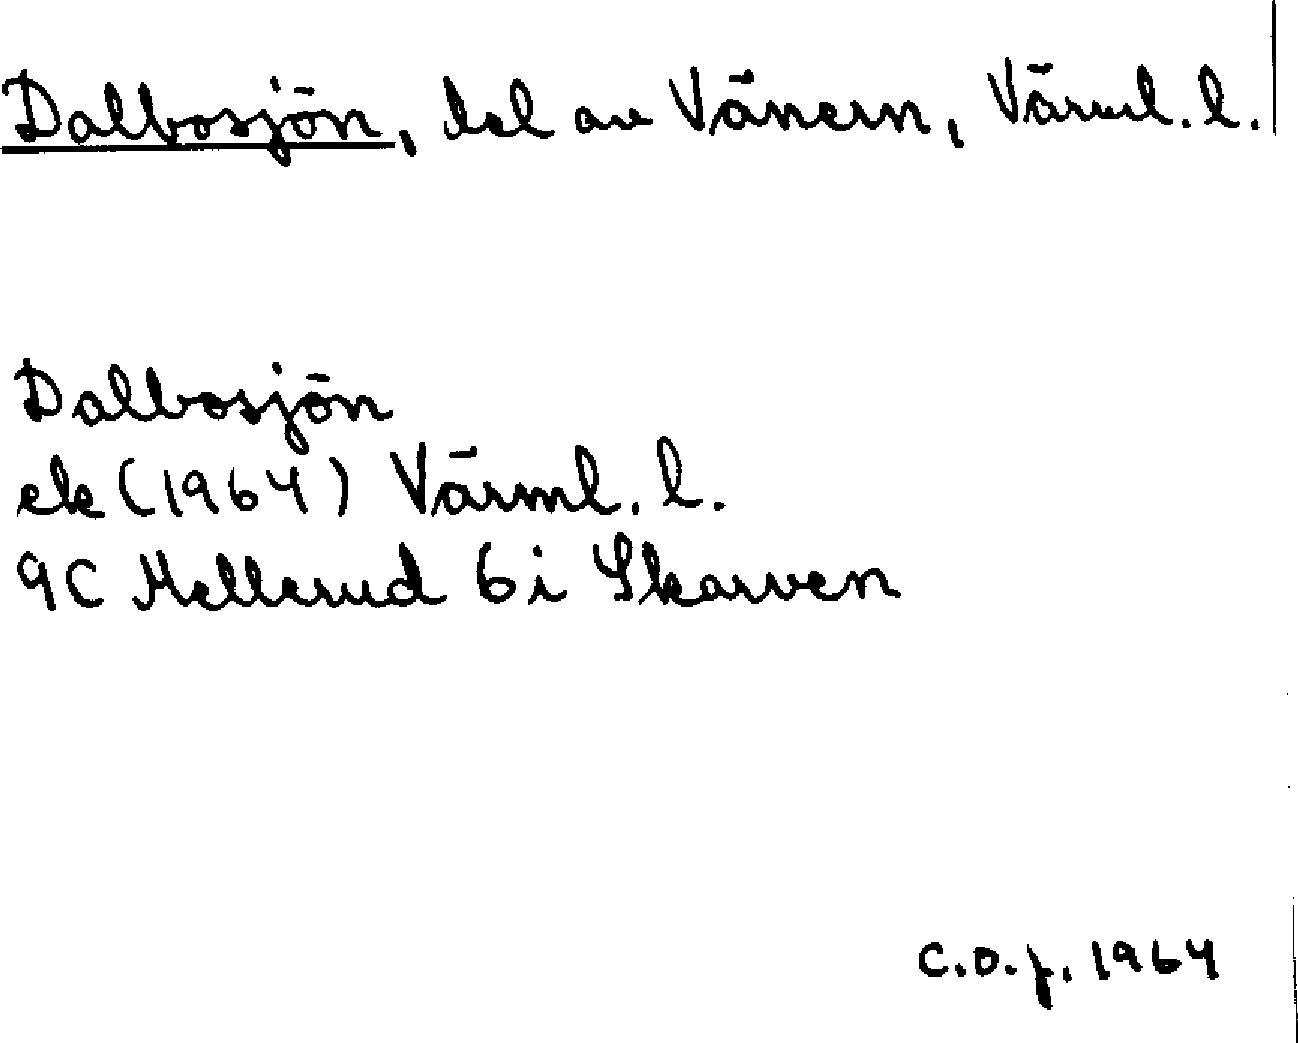 Dalbosjön, del av Vänern, Värml. l.
Dalbosjön
ek (1964) Värml. l.
9C Mellerud 6i Skarven
C.O.f. 1964